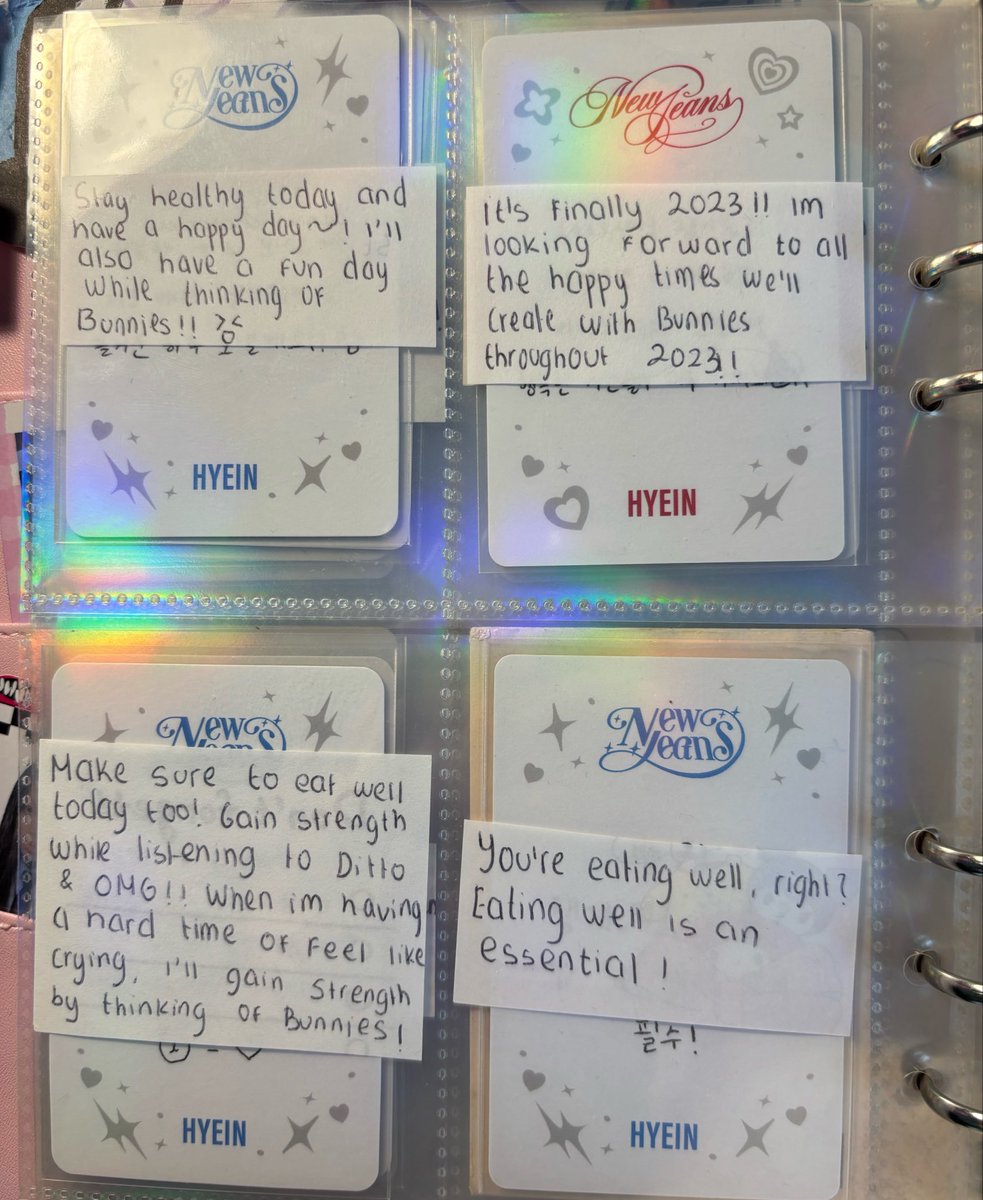 New
Jeans
Stay healthy today and
have a happy day~! I'll
also have a fun day
while thinking of
Bunnies!!
HYEIN
NewJeans
It's finally 2023!! Im
looking forward to all
the happy times we'll
create with Bunnies
throughout 2023!!
HYEIN
New
Jeans
Make sure to eat well
today too! Gain strength
while listening to Ditto
& OMG!! When im having
a hard time of feel like
crying, I'll gain strength
by thinking of Bunnies!
HYEIN
New
Jeans
You're eating well, right?
Eating well is an
essential!
필수!
HYEIN